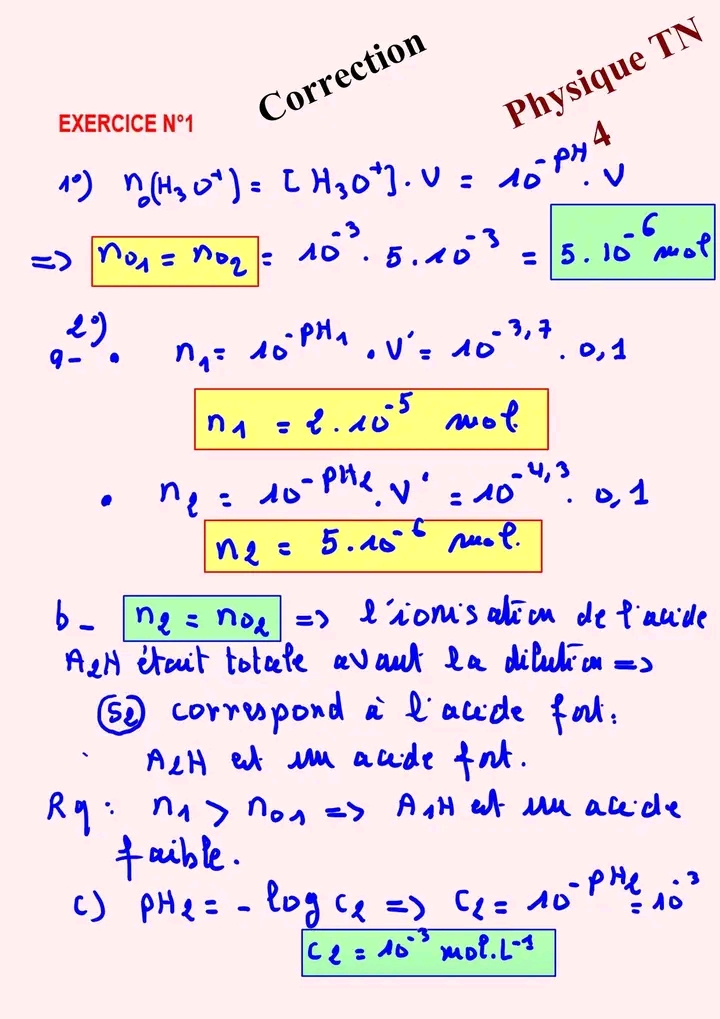 Correction
Physique TN
4
EXERCICE N°1
1°) n₀(H₃O⁺) = [H₃O⁺].V = 10^-pH . V
=> n₀₁ = n₀₂ = 10⁻³ . 5.10⁻³ = 5.10⁻⁶ mol
2°)
a- • n₁ = 10^-pH₁ . V' = 10^-3,7 . 0,1
n₁ = 2.10⁻⁵ mol.
• n₂ = 10^-pH₂ . V' = 10^-4,3 . 0,1
n₂ = 5.10⁻⁶ mol.
b- n₂ = n₀₂ => l'ionisation de l'acide
A₂H était totale avant la dilution =>
(S₂) correspond à l'acide fort :
A₂H est un acide fort.
Rq : n₁ > n₀₁ => A₁H est un acide
faible.
c) pH₂ = - log c₂ => C₂ = 10^-pH₂ = 10⁻³
C₂ = 10⁻³ mol.L⁻¹